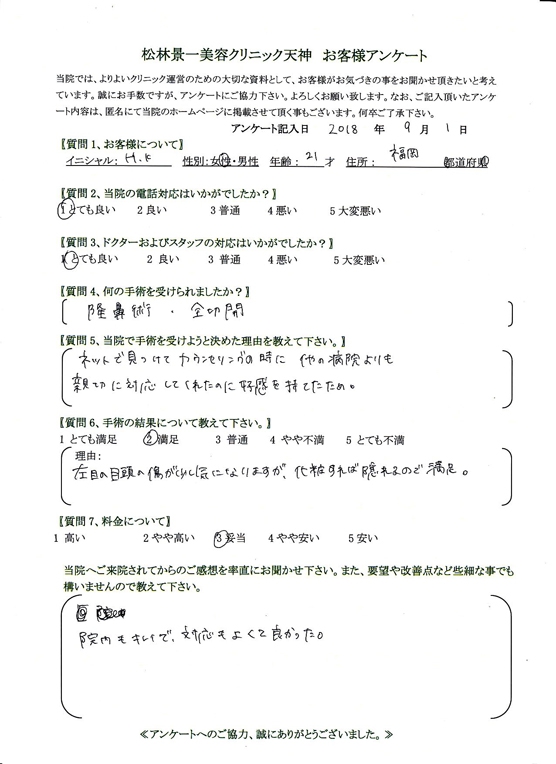 松林景一美容クリニック天神　お客様アンケート
当院では、よりよいクリニック運営のための大切な資料として、お客様がお気づきの事をお聞かせ頂きたいと考え
ています。誠にお手数ですが、アンケートにご協力下さい。よろしくお願い致します。なお、ご記入頂いたアンケ
ート内容は、匿名にて当院のホームページに掲載させて頂く事もございます。何卒ご了承下さい。
アンケート記入日　2018　年　9　月　1　日
【質問1、お客様について】
イニシャル：　H.K　性別：女性・男性　年齢：　21　才　住所：　福岡　都道府県
【質問2、当院の電話対応はいかがでしたか？】
1とても良い　2良い　3普通　4悪い　5大変悪い
【質問3、ドクターおよびスタッフの対応はいかがでしたか？】
1とても良い　2 良い　3 普通　4悪い　5大変悪い
【質問4、何の手術を受けられましたか？】
隆鼻術 ・ 全切開
【質問5、当院で手術を受けようと決めた理由を教えて下さい。】
ネットで見つけてカウンセリングの時に 他の病院よりも
親切に対応してくれたのに好感を持てたため。
【質問6、手術の結果について教えて下さい。】
1 とても満足　2満足　3 普通　4 やや不満　5 とても不満
理由：
左目の目頭の傷が少し気になりますが、化粧すれば隠れるので満足。
【質問7、料金について】
1 高い　2やや高い　3妥当　4やや安い　5安い
当院へご来院されてからのご感想を率直にお聞かせ下さい。また、要望や改善点など些細な事でも
構いませんので教えて下さい。
院内もキレイで、対応もよくて良かった。
≪アンケートへのご協力、誠にありがとうございました。≫